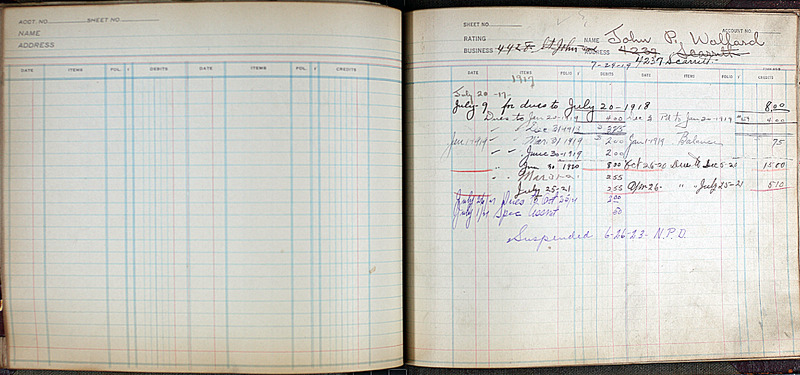 ACCT. NO. SHEET NO.
NAME
ADDRESS
DATE ITEMS FOL. √ DEBITS DATE ITEMS FOL. √ CREDITS
SHEET NO. ACCOUNT NO.
RATING NAME John P. Walford
BUSINESS 442 St John ADDRESS 4232 Scarritt
7-29-19 4237 Scarritt
DATE ITEMS FOLIO √ DEBITS DATE ITEMS FOLIO √ CREDITS
1917
July 20 -17-
July-9 for dues to July 20-1918 8.00
Dues to Jan 20-1919 4.00 to Jan 20-1919 4.00
" " Dec 31-1918 375
Jan 1-1919 " Mar 31 1919 200 Jan 1-1919 Balance 75
" " June 30-1919 200
" " Jun 30-1920 800 Oct 26-20 Due to Dec 5-21 15.00
" " 255
July 25-21 255 " " July 25-21 510
July 26/21 Dues to Oct 25/21 200
July 1/21 Spec Assmt 50
Suspended 6-26-23- N.P.D.